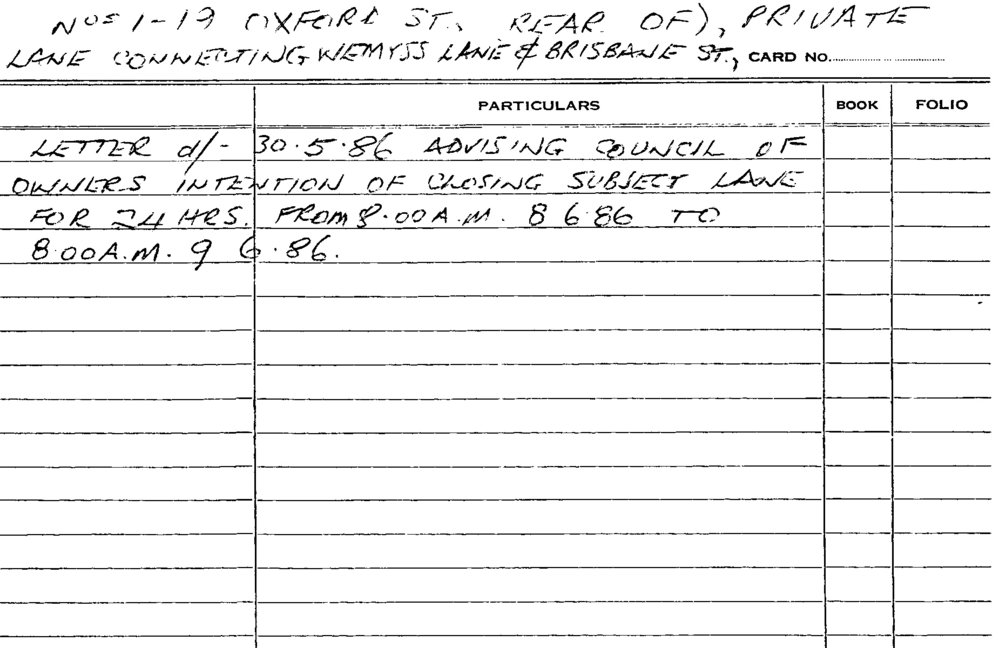 Nos 1-19 OXFORD ST., REAR OF), PRIVATE
LANE CONNECTING WEMYSS LANE & BRISBANE ST., CARD NO.
PARTICULARS BOOK FOLIO
LETTER d/- 30.5.86 ADVISING COUNCIL OF
OWNERS INTENTION OF CLOSING SUBJECT LANE
FOR 24 HRS. FROM 8.00 A.M. 8 6 86 TO
8.00 A.M. 9 6.86.